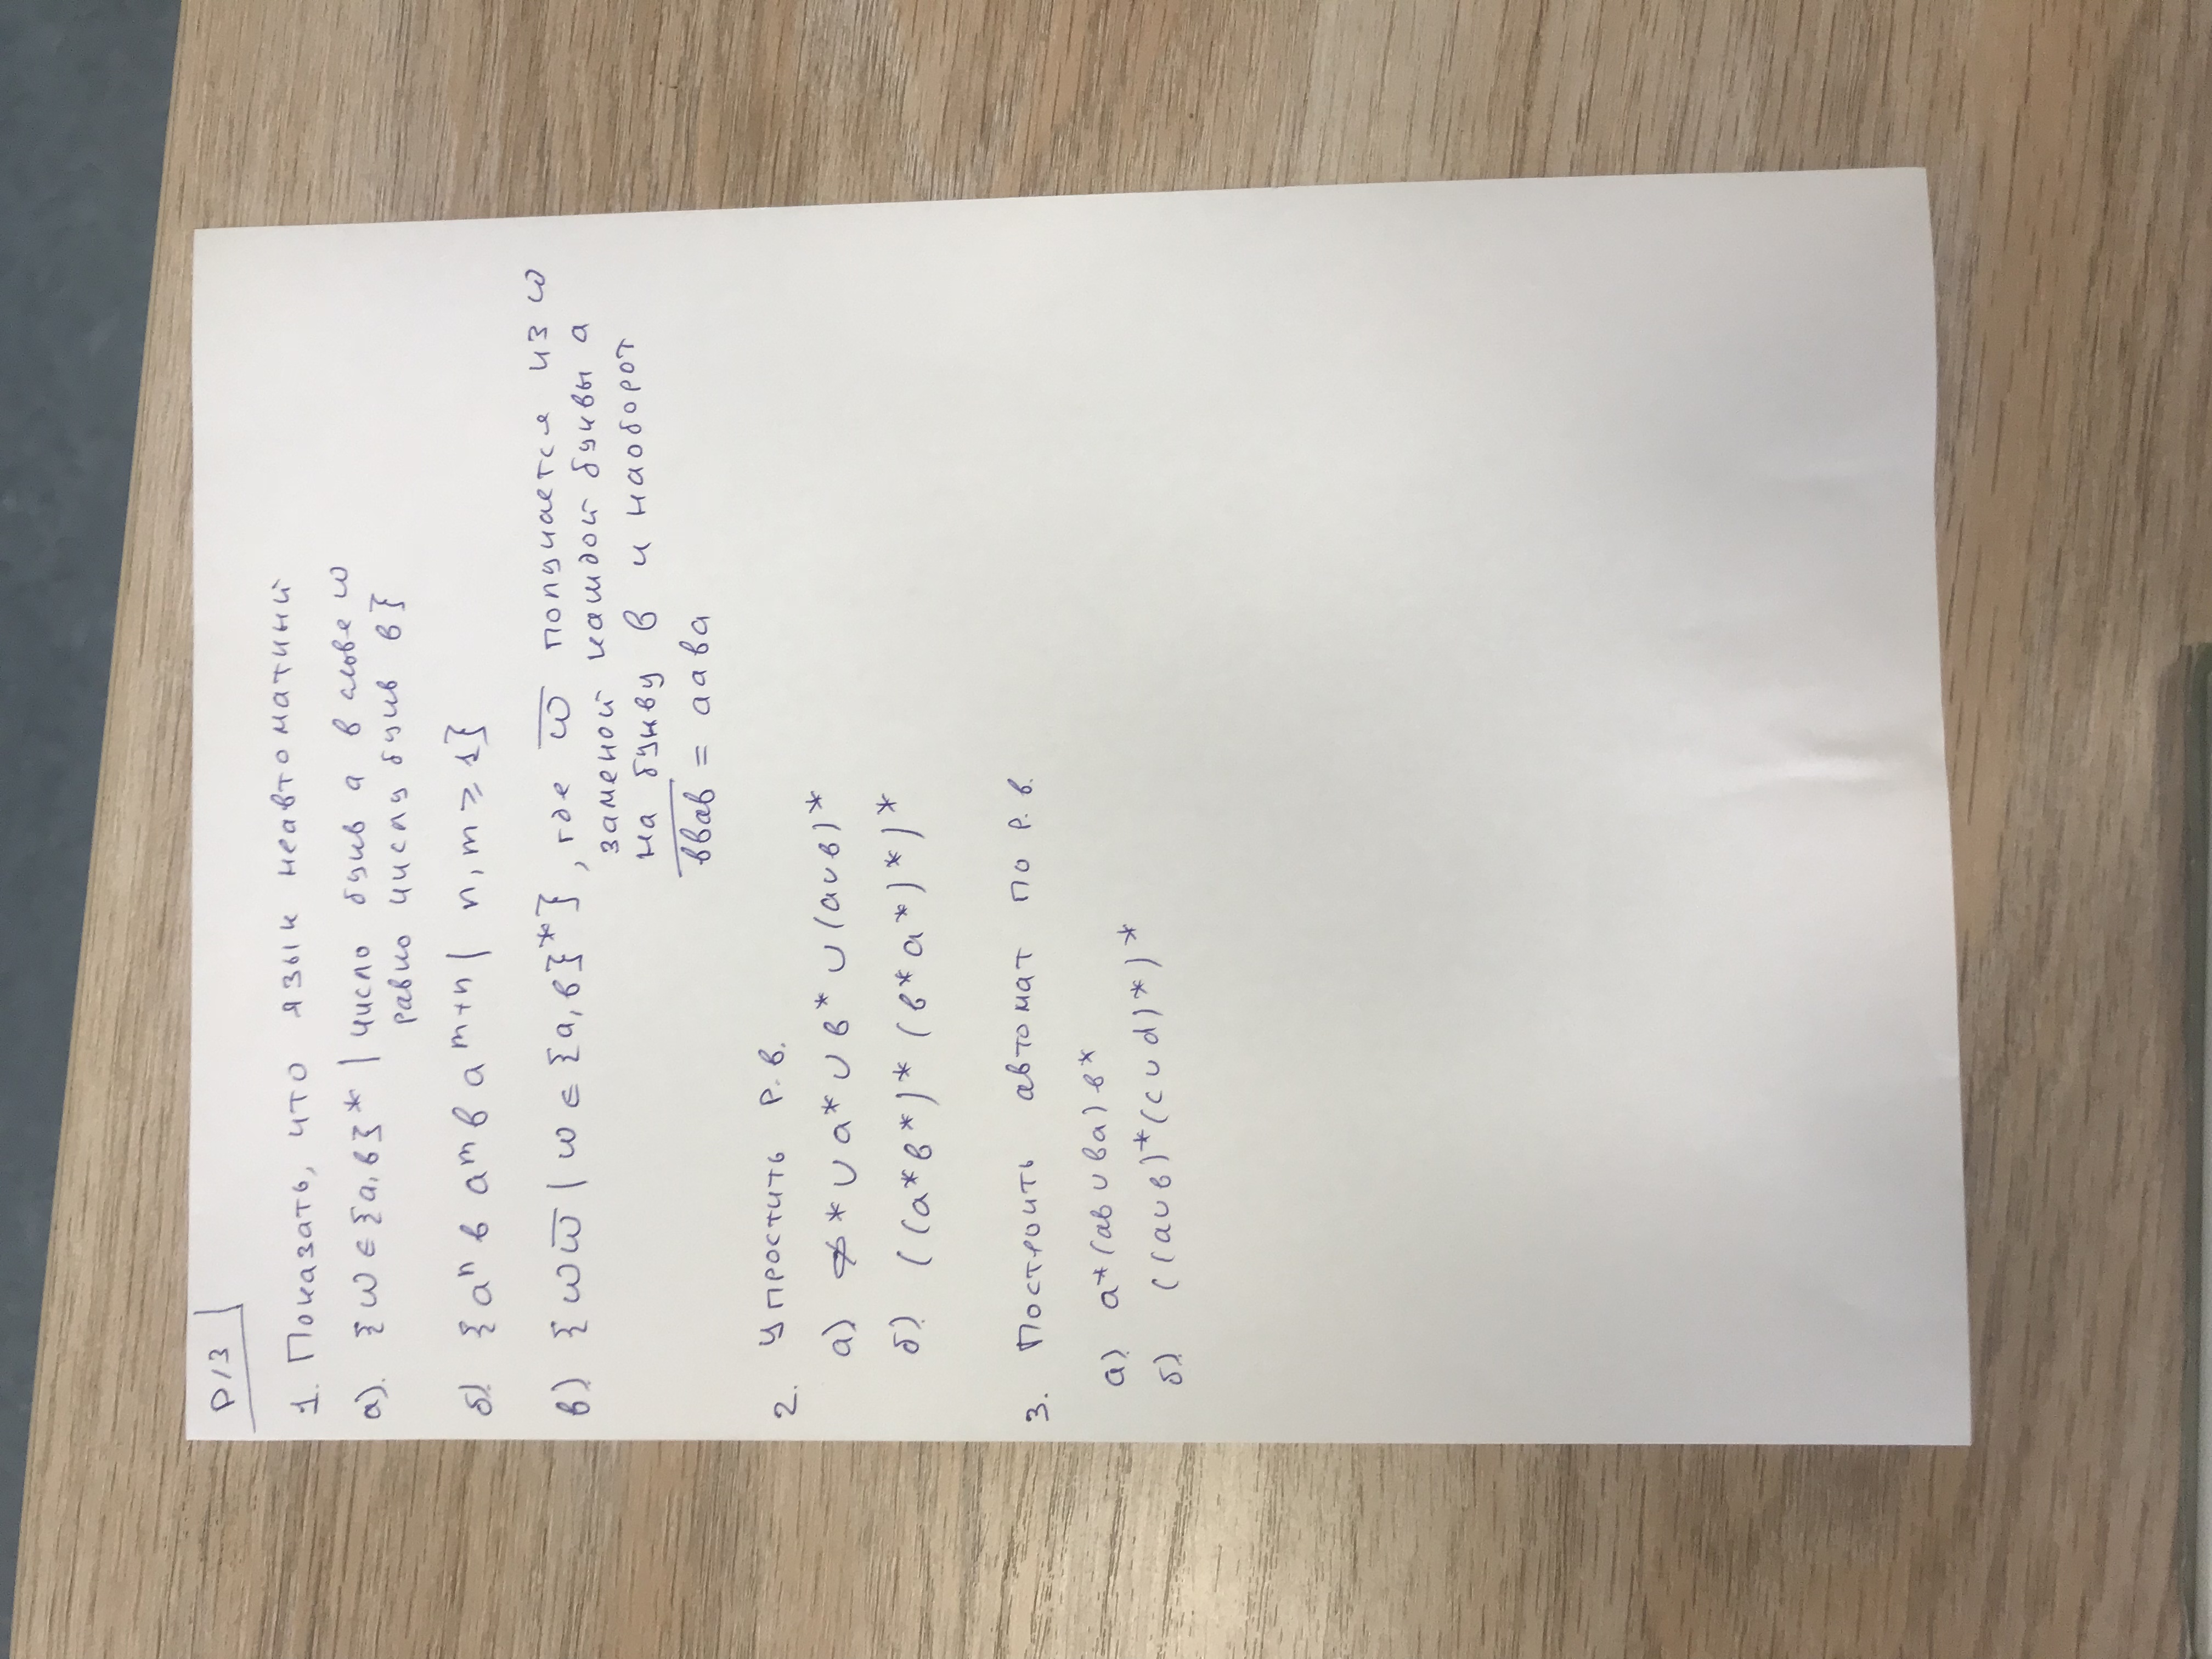 D/З
1. Показать, что язык неавтоматный
а). {ω ∈ {a, b}* | число букв a в слове ω
равно числу букв b}
б). {aⁿ b aᵐ b aᵐ⁺ⁿ | n, m ⩾ 1}
в) {ωω̅ | ω ∈ {a, b}*}, где ω̅ получается из ω
заменой каждой буквы a
на букву b и наоборот
b̅b̅a̅b̅ = aaba
2. Упростить Р.в.
а) ∅* ∪ a* ∪ b* ∪ (a∪b)*
б) ((a*b*)* (b*a*)*)*
3. Построить автомат по Р.в.
а) a*(ab ∪ ba) b*
б) ((a∪b)*(c∪d)*)*